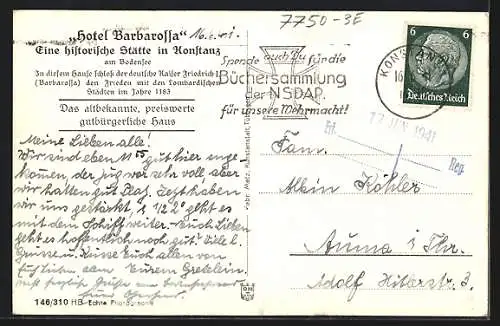 „Hotel Barbarossa"
Eine historische Stätte in Konstanz
am Bodensee
In diesem Hause schloß der deutsche Kaiser Friedrich I.
(Barbarossa) den Frieden mit den Lombardischen
Städten im Jahre 1183
Das altbekannte, preiswerte
gutbürgerliche Haus
Meine Lieben alle!
Wir sind eben 11 gut hier ange-
kommen, der Zug war sehr voll, aber
wir hatten gut Platz. Jetzt haben
wir uns gestärkt, ½ 2 geht es
mit dem Schiff weiter. Euch Lieben
geht es hoffentlich noch gut. Viele l.
Grüsse u. Küsse Euch allen von
Eurem Gretelein.
146/310 HB Echte Photographie
7750-3E
Spende auch Du für die
Büchersammlung
der NSDAP.
für unsere Wehrmacht!
KONSTANZ
6 6
Deutsches Reich
17 JUN 1941
Fam.
Albin Köhler
Auma i. Thr.
Adolf Hitlerstr. 3.